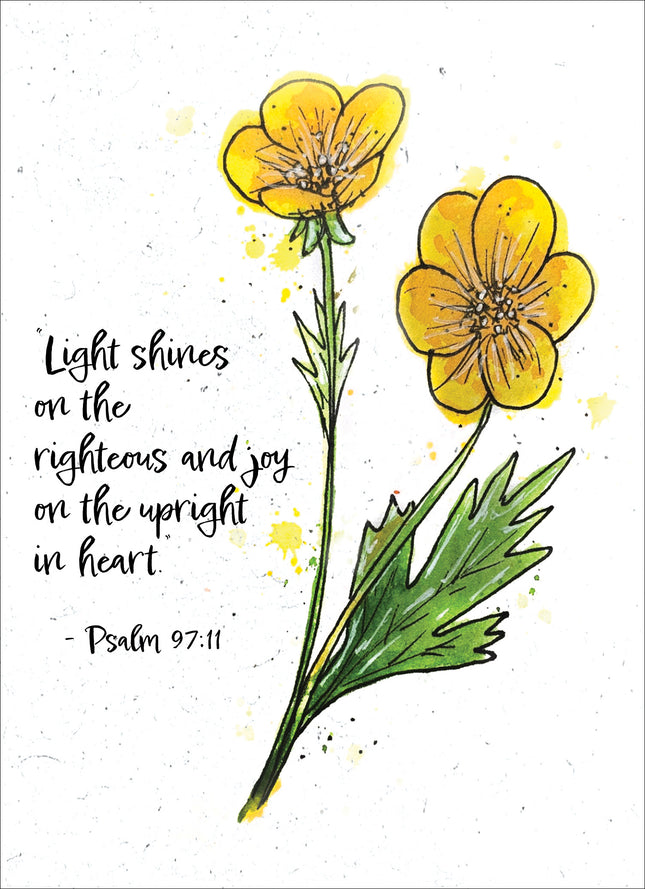 "Light shines
on the
righteous and joy
on the upright
in heart."
- Psalm 97:11